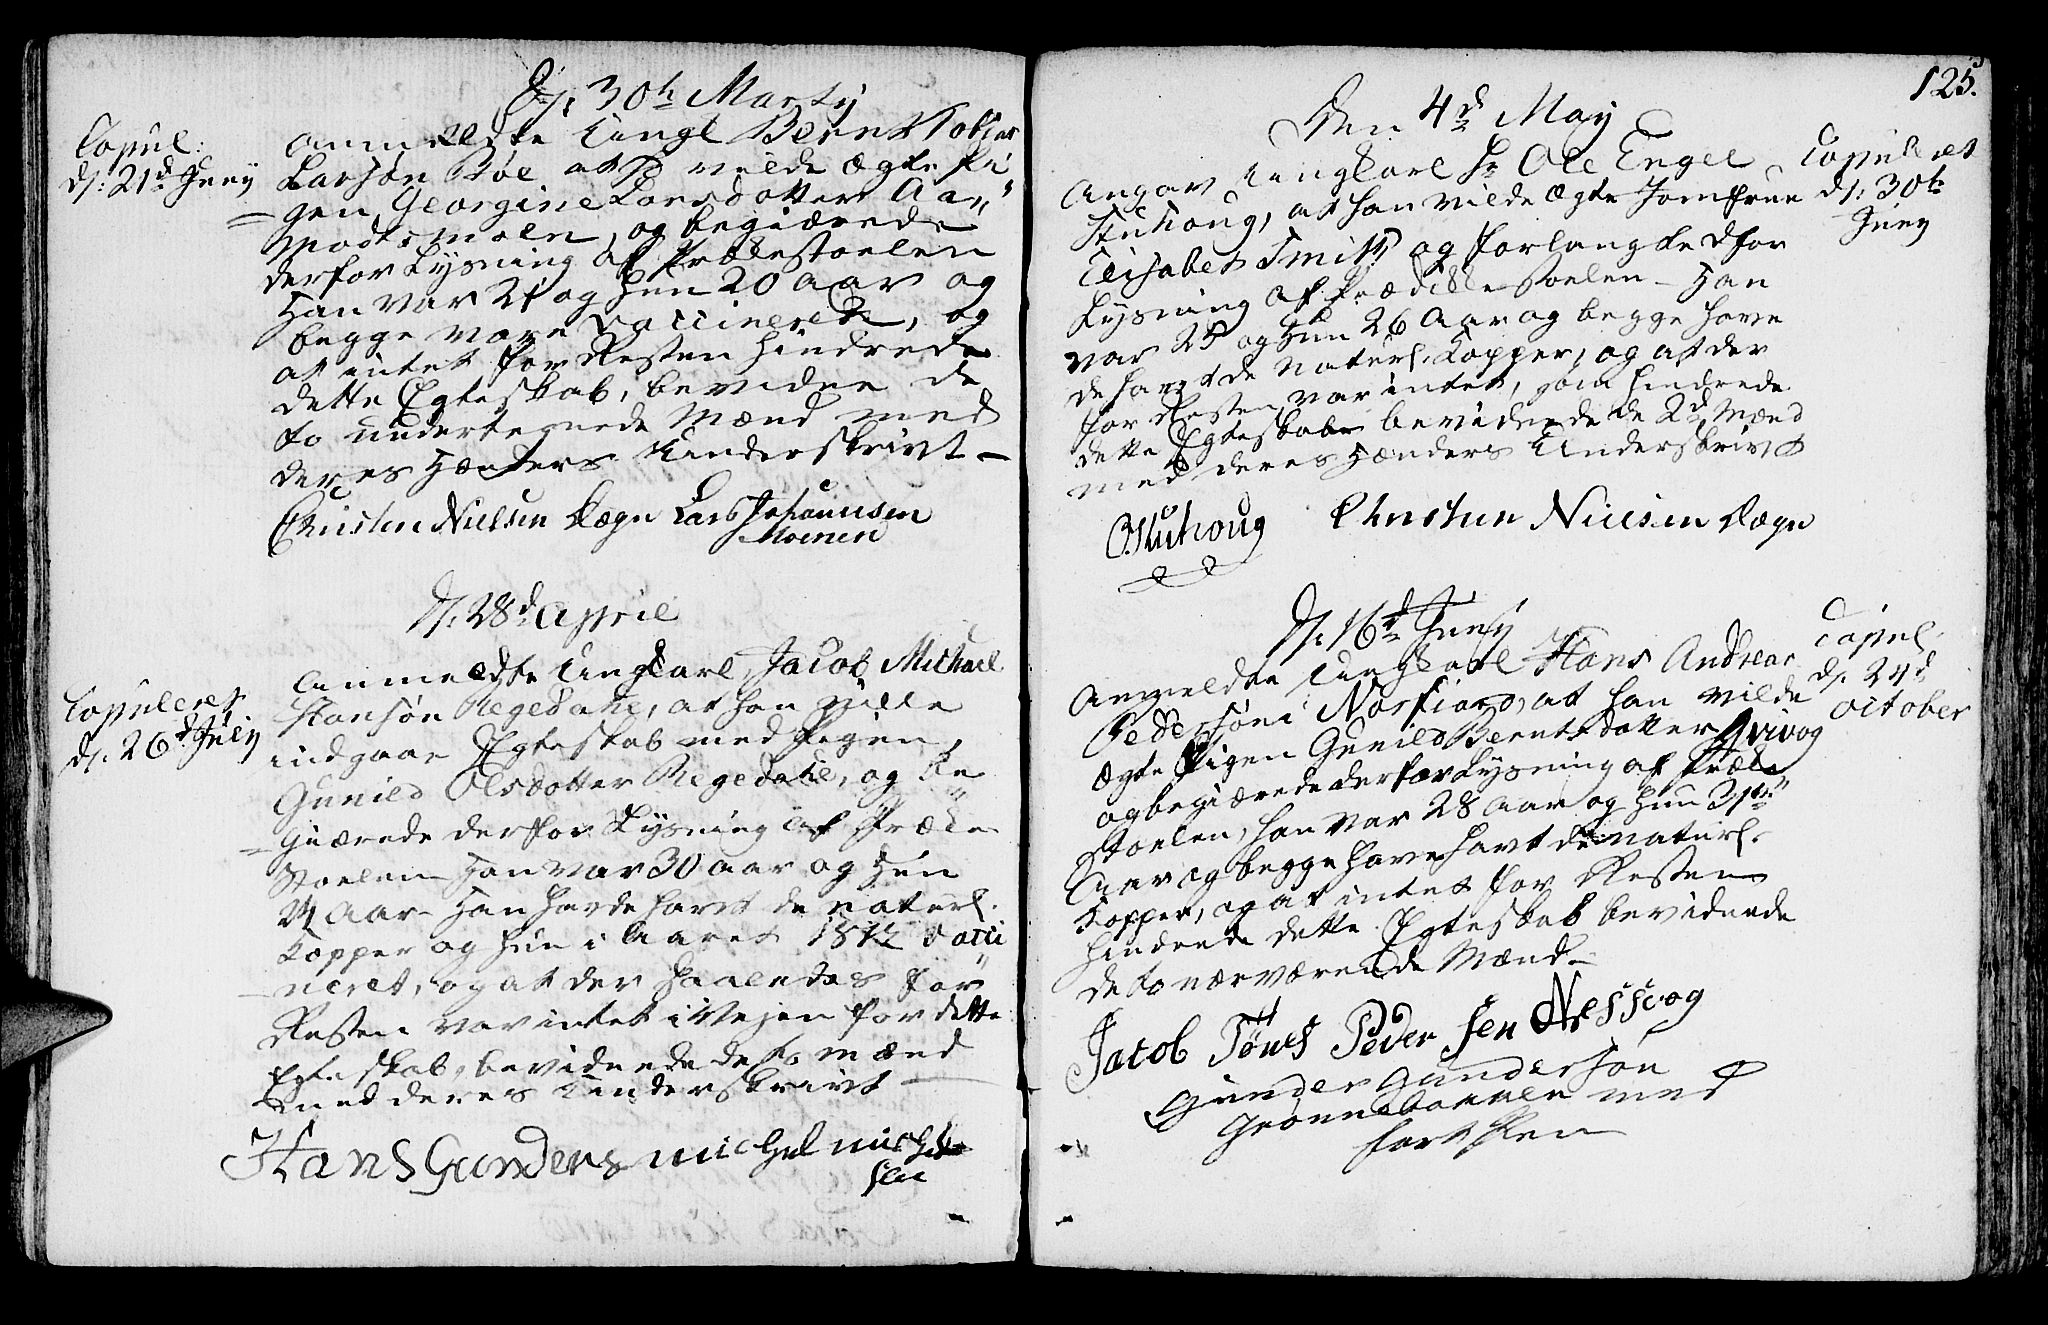 D/: 30te Marty
Copul:
d/: 21de Juny
anmeldte Ungk Bernt Tobias
Larsøn Bøe at vilde ægte Pi
gen Georgine Larsdotter Aa
=modtsmoen, og begiærede
derfor Lysning af Prækestoelen
Han var 21 og hun 20 aar og
begge vare vaccinerede, og
at intet for Resten hindrede
dette Egteskab, bevidne de
to undertegnede Mænd med
deres Hænders Underskrivt –
Christen Nielsen Dægn Lars Johannesen
Moenen
D/: 28de April
Copuleret
d/: 26de July
Anmeldte Ungkarl Jacob Michael
Hansøn Regedahl, at han ville
indgaae Egteskab med Pigen
Gunild Olsdotter Regedahl, og be
=giærede derfor Lysning af Præke
Stoelen Han var 30 aar og Hun
24 Aar – Han havde havt de naturl.
Kopper og hun i Aaret 1812 vacci
=neret, og at der saaledes for
Resten var intet i Vejen for dette
Egteskab, bevidnede de to mænd
med deres Underskrivt –
Hans Gunders michel michel
sen
125.
Den 4de May
Angav Ungkarl Hr Ole Engel
Stuhoug, at han vilde ægte Jomfrue
Copuleret
d/: 30te
Juny
Elisabet Smitt og forlangte dfor
Lysning af Prædikestoelen – Han
var 25 og Hun 26 Aar og begge have
de havt de naturl. Kopper, og at der
for Resten var intet, som hindrede
dette Egteskab bevidnede de 2de Mænd
med deres Hænders Underskrivt
O Stuhoug Christen Nielsen Dægn
D/: 16de Juny
Copul
d/: 24de
October
Anmeldte Ungkarl Hans Andreas
Pedersøn Nosfiord, at han vilde
ægte Pigen Gunild Berntsdotter Qvivog
og begiærede derfor Lysning af Præke
Stoelen, han var 28 Aar og hun 31te
Aar og begge have havt de naturl.
Kopper, og at intet for Resten
hindrede dette Egteskab bevidnede
de to nærværende Mænd –
Jacob Tønes Peder sen Nessvog
Gunder Gundersøn
Grønnebakken med
ført Pen